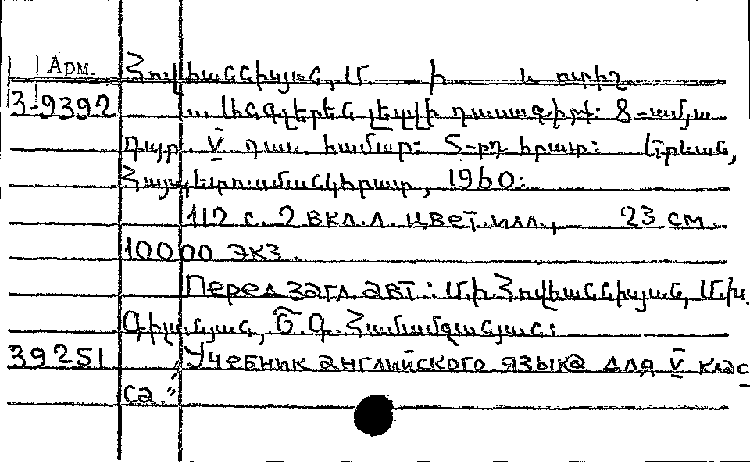 Арм. Հովհաննիսյան, Մ. և ուրիշ
3-9392 ... Անգլերեն լեզվի դասագիրք: 8-ամյա
դպր. V դաս. համար: 5-րդ հրատ: Երևան,
Հայպետուսմանկհրատ, 1960:
112 с. 2 вкл.л. цвет.илл., 23 см.
10000 экз.
Перед загл. авт.: Մ. Ի. Հովհաննիսյան, Մ. Խ.
Գիլանյան, Ե. Գ. Համամջանյան:
39251 "Учебник английского языка для V клас
са."